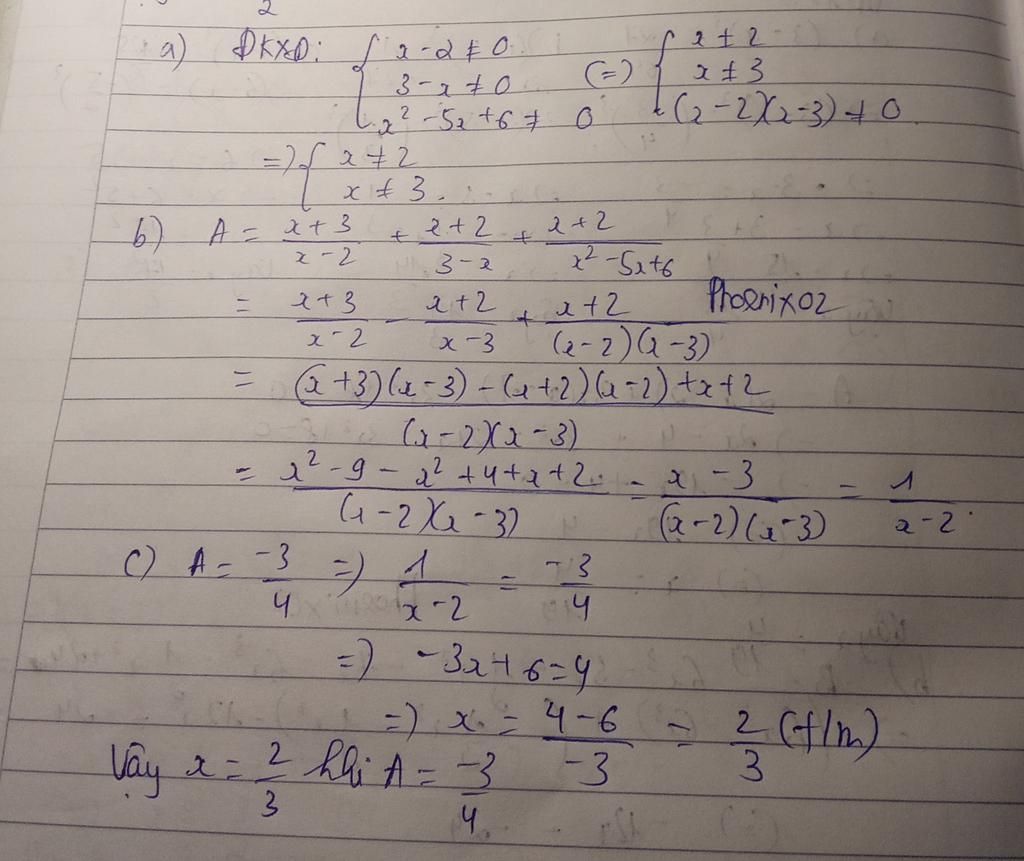 2
a) ĐKXĐ: { x - 2 ≠ 0 (=) { x ≠ 2
3 - x ≠ 0 x ≠ 3
x² - 5x + 6 ≠ 0 (x - 2)(x - 3) ≠ 0
=) { x ≠ 2
x ≠ 3.
b) A = \frac{x + 3}{x - 2} + \frac{x + 2}{3 - x} + \frac{x + 2}{x² - 5x + 6}
= \frac{x + 3}{x - 2} - \frac{x + 2}{x - 3} + \frac{x + 2}{(x - 2)(x - 3)} Phoenix02
= \frac{(x + 3)(x - 3) - (x + 2)(x - 2) + x + 2}{(x - 2)(x - 3)}
= \frac{x² - 9 - x² + 4 + x + 2}{(x - 2)(x - 3)} = \frac{x - 3}{(x - 2)(x - 3)} = \frac{1}{x - 2}.
c) A = \frac{-3}{4} =) \frac{1}{x - 2} = \frac{-3}{4}
=) -3x + 6 = 4
=) x = \frac{4 - 6}{-3} = \frac{2}{3} (t/m)
Vậy x = \frac{2}{3} khi A = \frac{-3}{4}